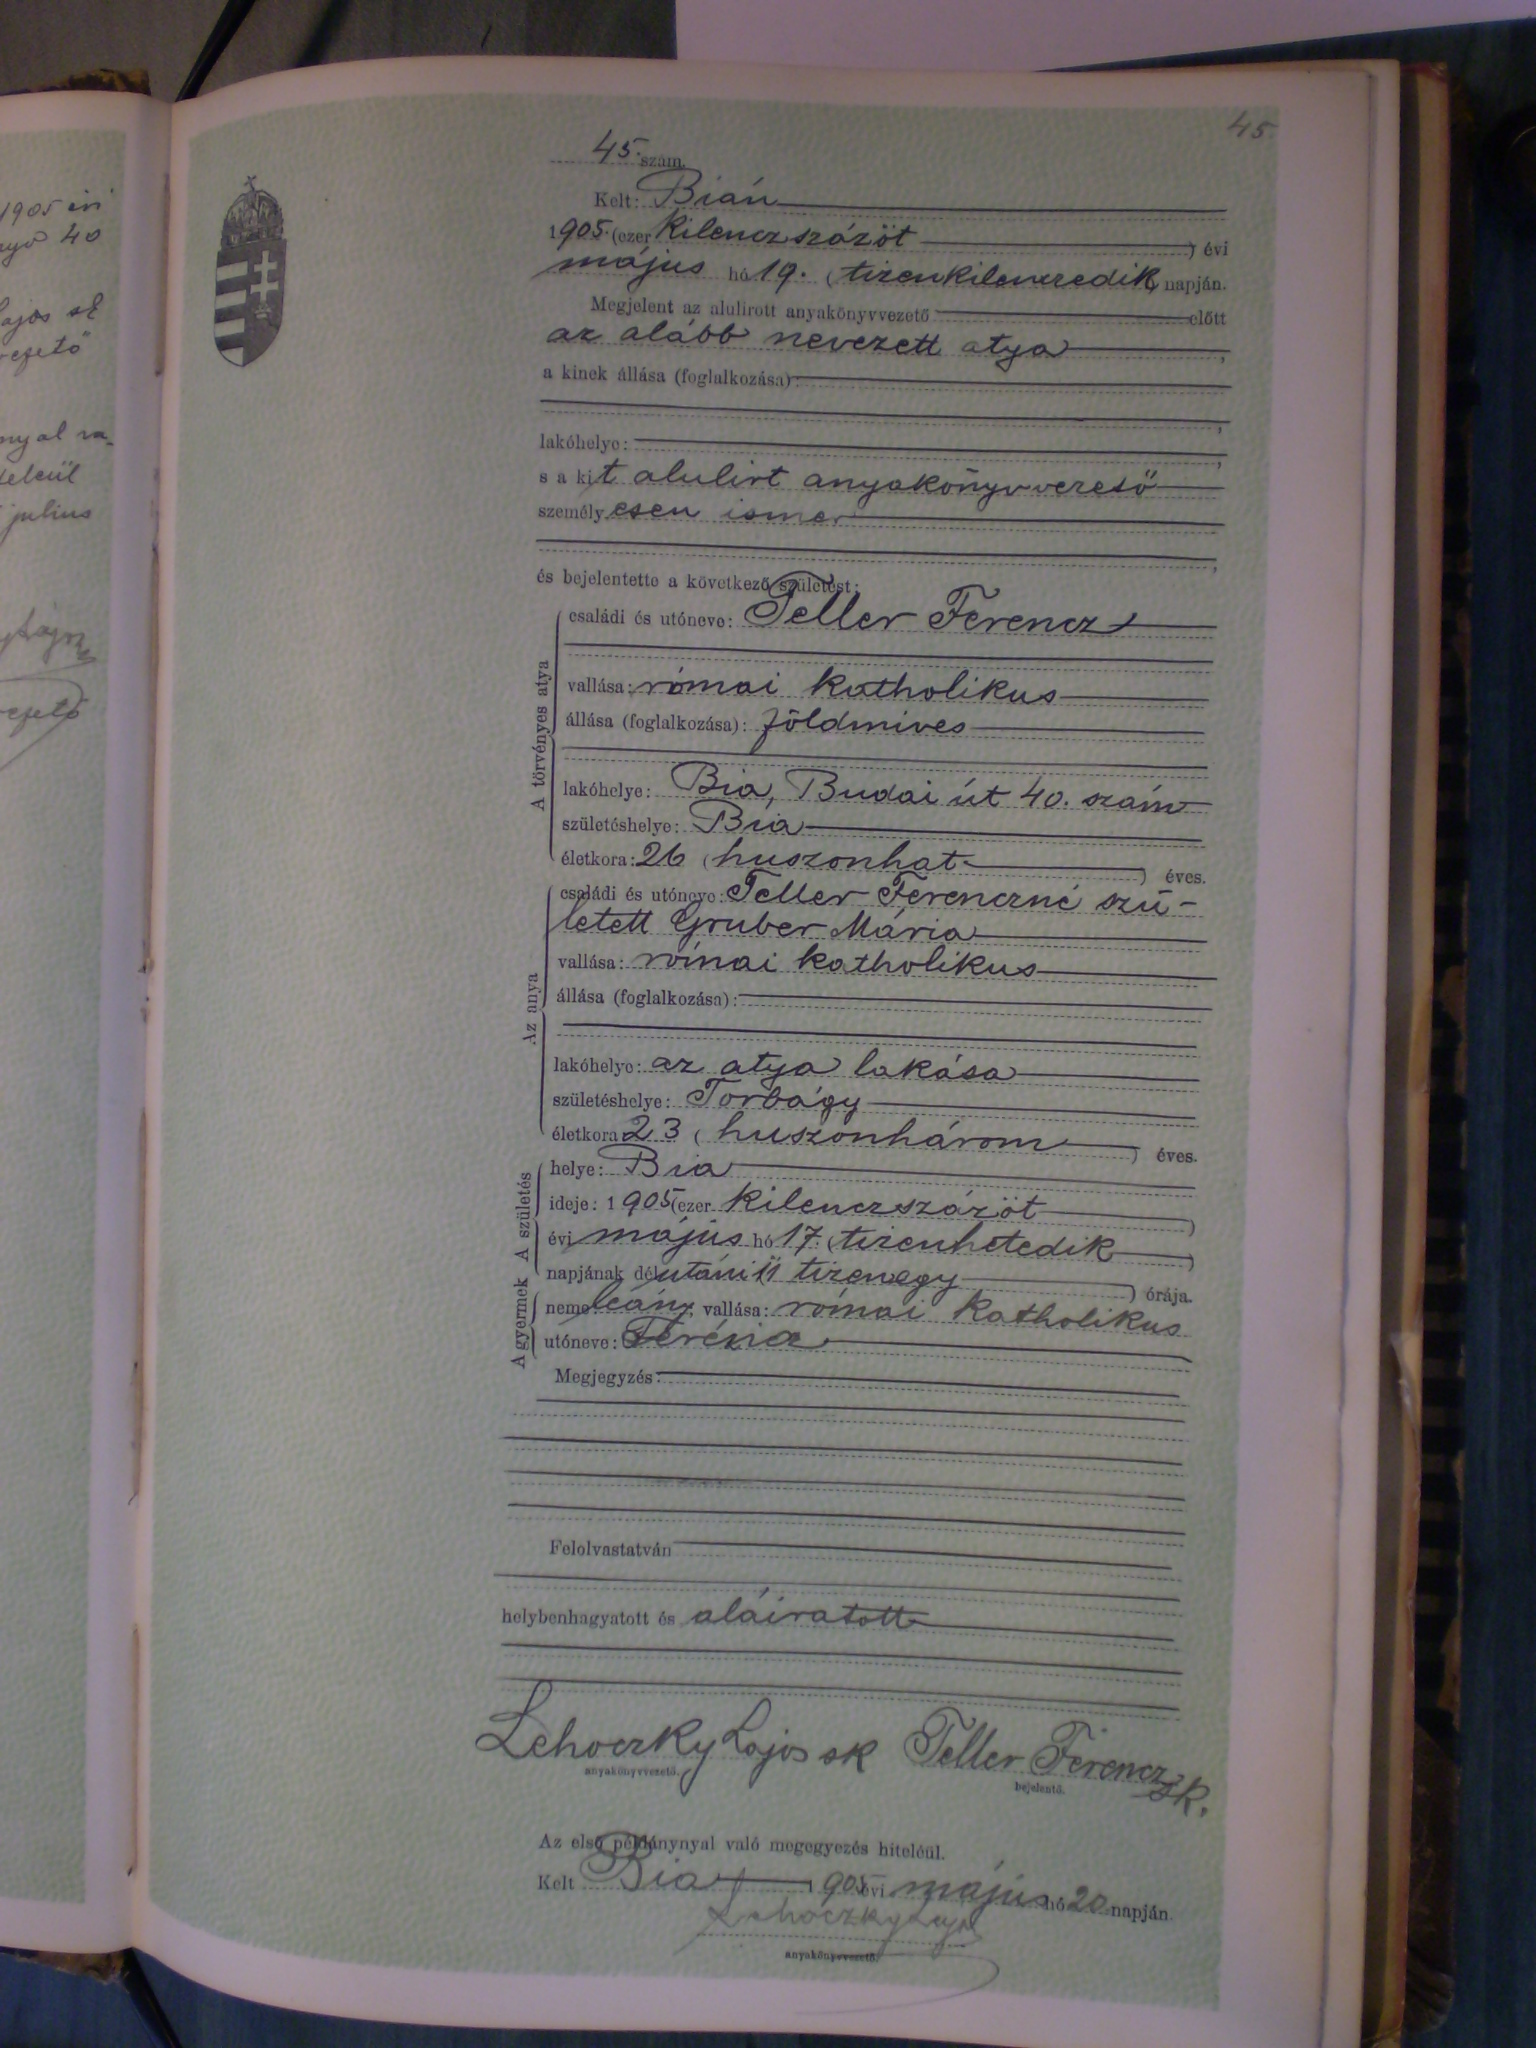 1905 évi
40
Lajos sk
julius
45
45. szám.
Kelt: Bián
1905. (ezer kilenczszázöt ) évi
május hó 19. (tizenkilenczedik) napján.
Megjelent az alulirott anyakönyvvezető előtt
az alább nevezett atya,
a kinek állása (foglalkozása):
lakóhelye:
s a kit alulirt anyakönyvvezető
személyesen ismer
és bejelentette a következő születést:
A törvényes atya
családi és utóneve: Teller Ferencz
vallása: római katholikus
állása (foglalkozása): földmives
lakóhelye: Bia, Budai út 40. szám
születéshelye: Bia
életkora: 26 (huszonhat ) éves.
Az anya
családi és utóneve: Teller Ferenczné szü-
letett Gruber Mária
vallása: római katholikus
állása (foglalkozása):
lakóhelye: az atya lakása
születéshelye: Torbágy
életkora 23 (huszonhárom ) éves.
A születés
helye: Bia
ideje: 1905 (ezer kilenczszázöt )
évi május hó 17. (tizenhetedik )
napjának délutáni 11 tizenegy ) órája.
A gyermek
neme: leány, vallása: római katholikus
utóneve: Terézia
Megjegyzés:
Felolvastatván
helybenhagyatott és aláiratott
Lehoczky Lajos sk Teller Ferencz sk.
anyakönyvvezető. bejelentő.
Az első példánynyal való megegyezés hiteléül.
Kelt Bia 1905 évi május hó 20 napján
Lehoczky Lajos
anyakönyvvezető.